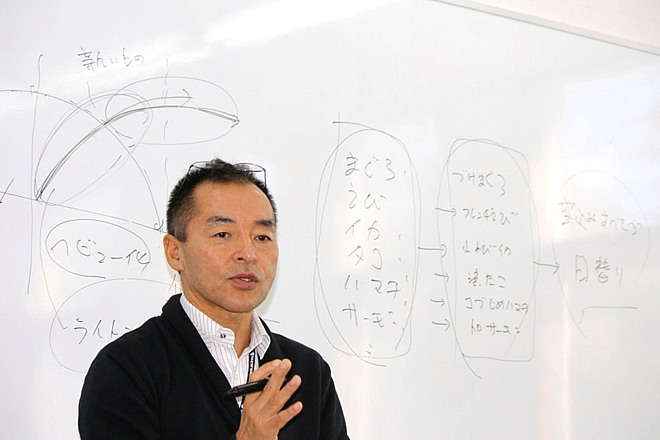 新しいもの
ヘビー化
ライト
まぐろ
えび
イカ
タコ
ハマチ
サーモン
づけまぐろ
フレンチえび
山わさびイカ
漬たこ
コブじめハマチ
トロサーモン
日替り